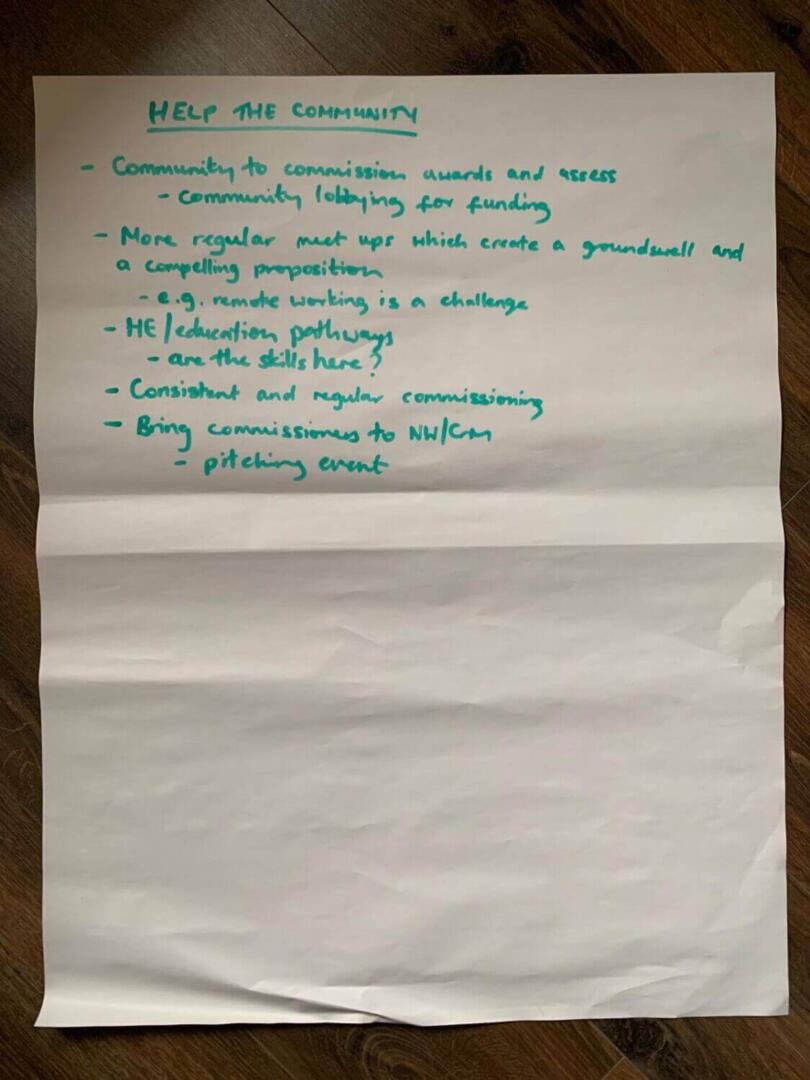 HELP THE COMMUNITY
- Community to commission awards and assess
- community lobbying for funding
- More regular meet ups which create a groundswell and
a compelling proposition
- e.g. remote working is a challenge
- HE/education pathways
- are the skills here?
- Consistent and regular commissioning
- Bring commissioners to NW/GM
- pitching event